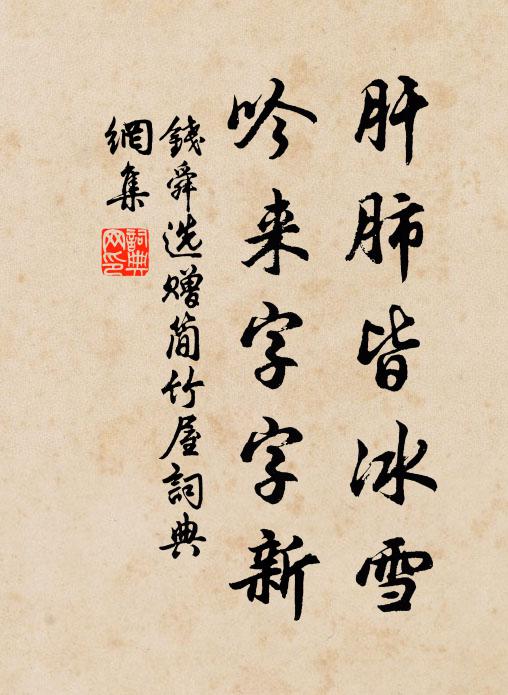 肝肺皆冰雪
吟来字字新
錢舜选赠简竹屋詞典
網集
詞典
网印